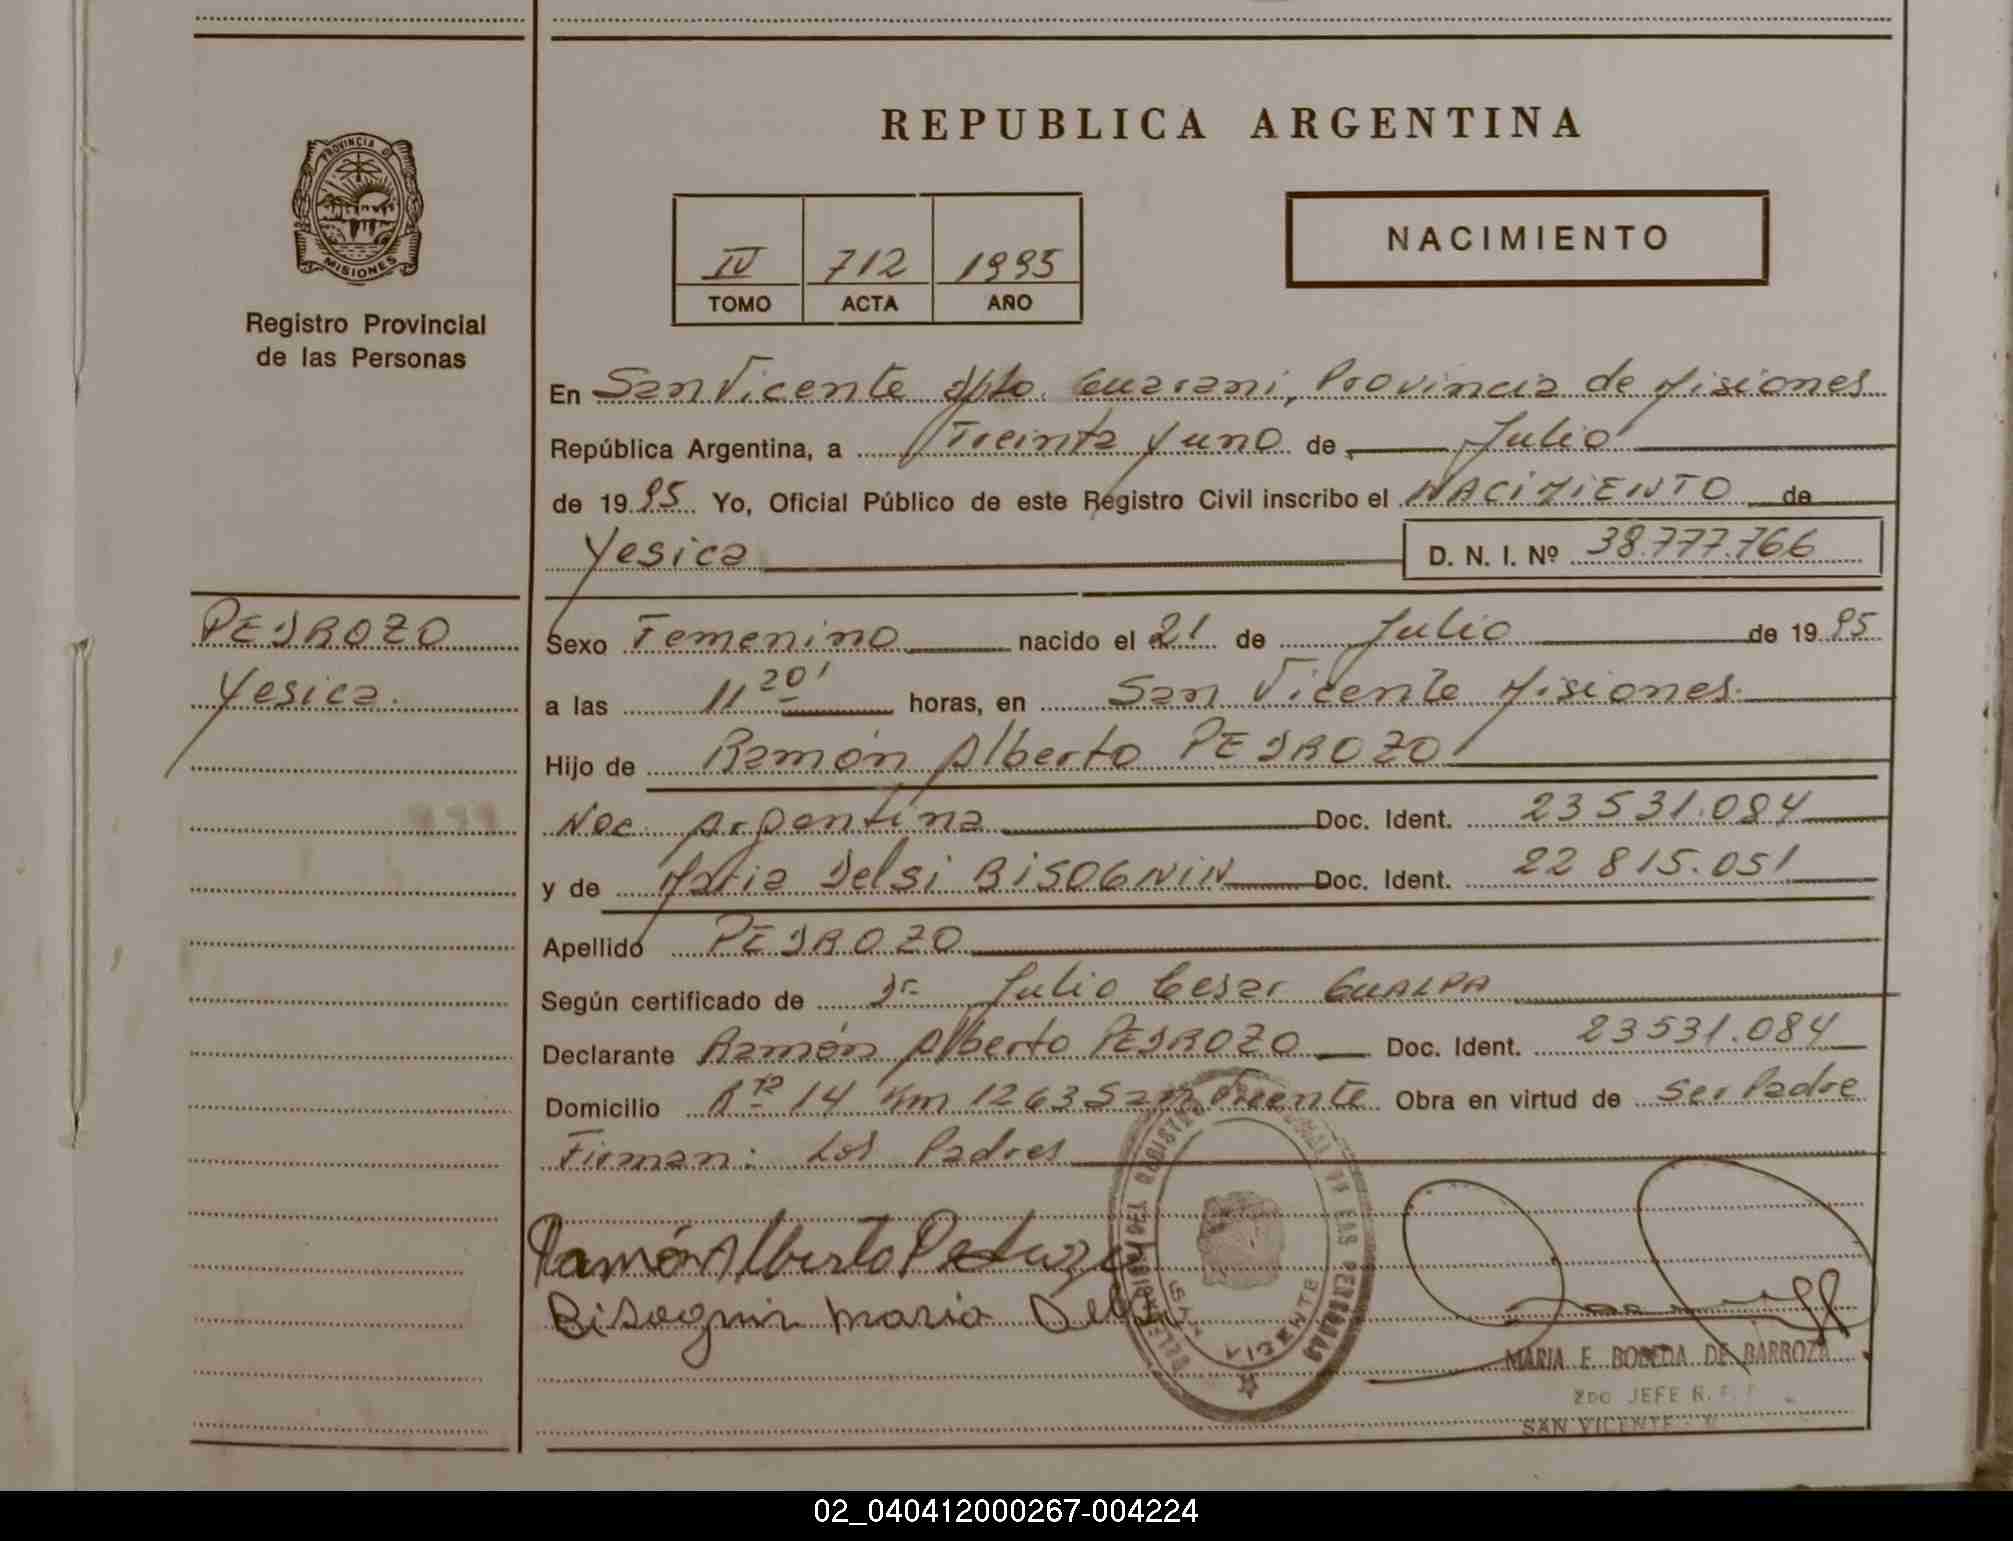 REPUBLICA ARGENTINA
PROVINCIA D
MISIONES
Registro Provincial
de las Personas
IV 712 1995
TOMO ACTA AÑO
NACIMIENTO
En San Vicente Dpto. Guarani, Provincia de Misiones
República Argentina, a Treinta y uno de Julio
de 1995 Yo, Oficial Público de este Registro Civil inscribo el NACIMIENTO de
Yesica D. N. I. Nº 38.777.766
PEDROZO
Yesica.
Sexo Femenino nacido el 21 de Julio de 1995
a las 11 20' horas, en San Vicente Misiones.
Hijo de Ramón Alberto PEDROZO
Nac. Argentina Doc. Ident. 23531.084
y de Maria Delsi BISOGNIN Doc. Ident. 22 815.051
Apellido PEDROZO
Según certificado de Dr. Julio Cesar GUALPA
Declarante Ramón Alberto PEDROZO Doc. Ident. 23531.084
Domicilio Rta 14 Km 1263 San Vicente Obra en virtud de Ser Padre
Firman: Los Padres
Ramón Alberto Pedrozo
Bisognin Maria Delsi
VICENTE
MARIA E. BOBEDA DE BARROZA
2DO JEFE R. P. P.
SAN VICENTE - M
02_040412000267-004224